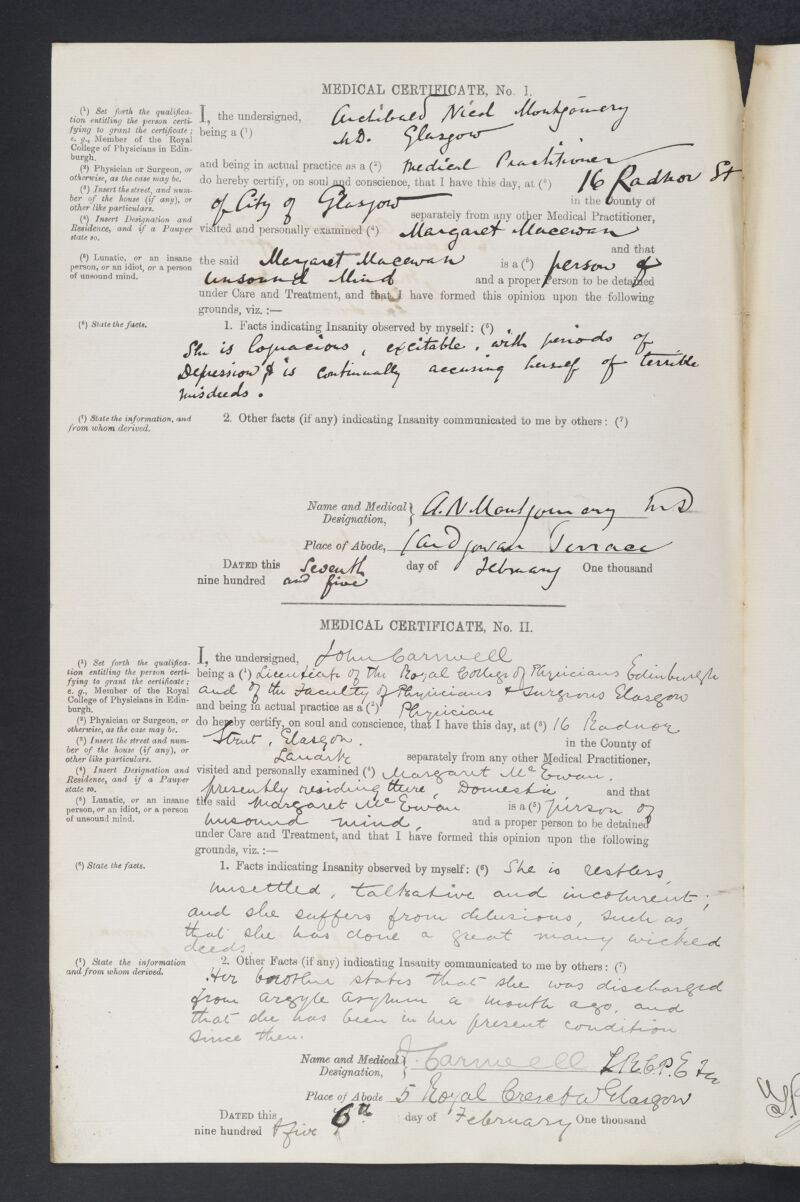 MEDICAL CERTIFICATE, No. I.
(¹) Set forth the qualifica-
tion entitling the person certi-
fying to grant the certificate;
e. g., Member of the Royal
College of Physicians in Edin-
burgh.
(²) Physician or Surgeon, or
otherwise, as the case may be.
(³) Insert the street, and num-
ber of the house (if any), or
other like particulars.
(⁴) Insert Designation and
Residence, and if a Pauper
state so.
(⁵) Lunatic, or an insane
person, or an idiot, or a person
of unsound mind.
I, the undersigned, Archibald Nicol Montgomery
being a (¹) M.D. Glasgow
and being in actual practice as a (²) Medical Practitioner
do hereby certify, on soul and conscience, that I have this day, at (³) 16 Radnor St
of City of Glasgow in the County of
separately from any other Medical Practitioner,
visited and personally examined (⁴) Margaret Macewan
and that
the said Margaret Macewan is a (⁵) person of
unsound Mind and a proper Person to be detained
under Care and Treatment, and that I have formed this opinion upon the following
grounds, viz. :—
(⁶) State the facts.
1. Facts indicating Insanity observed by myself: (⁶)
She is loquacious, excitable, with periods of
Depression & is continually accusing herself of terrible
misdeeds.
(⁷) State the information, and
from whom derived.
2. Other facts (if any) indicating Insanity communicated to me by others: (⁷)
Name and Medical
Designation, A. N. Montgomery M.D
Place of Abode, Terrace
DATED this Seventh day of February One thousand
nine hundred and five
MEDICAL CERTIFICATE, No. II.
(¹) Set forth the qualifica-
tion entitling the person certi-
fying to grant the certificate;
e. g., Member of the Royal
College of Physicians in Edin-
burgh.
(²) Physician or Surgeon, or
otherwise, as the case may be.
(³) Insert the street and num-
ber of the house (if any), or
other like particulars.
(⁴) Insert Designation and
Residence, and if a Pauper
state so.
(⁵) Lunatic, or an insane
person, or an idiot, or a person
of unsound mind.
I, the undersigned, John Carswell
being a (¹) Licentiate of the Royal College of Physicians Edinburgh
and of the Faculty of Physicians & Surgeons Glasgow
and being in actual practice as a (²) Physician
do hereby certify, on soul and conscience, that I have this day, at (³) 16 Radnor
Street, Glasgow. in the County of
Lanark separately from any other Medical Practitioner,
visited and personally examined (⁴) Margaret McEwan,
presently residing there, Domestic, and that
the said Margaret McEwan is a (⁵) person of
unsound mind, and a proper person to be detained
under Care and Treatment, and that I have formed this opinion upon the following
grounds, viz. :—
(⁶) State the facts.
1. Facts indicating Insanity observed by myself: (⁶) She is restless,
unsettled, talkative and incoherent;
and she suffers from delusions, such as
that she has done a great many wicked
deeds.
(⁷) State the information
and from whom derived.
2. Other Facts (if any) indicating Insanity communicated to me by others: (⁷)
Her brother states that she was discharged
from Argyle Asylum a month ago, and
that she has been in her present condition
since then.
Name and Medical
Designation, J Carswell L.R.C.P.E
Place of Abode 5 Royal Crescent W Glasgow
DATED this 6th day of February One thousand
nine hundred & five